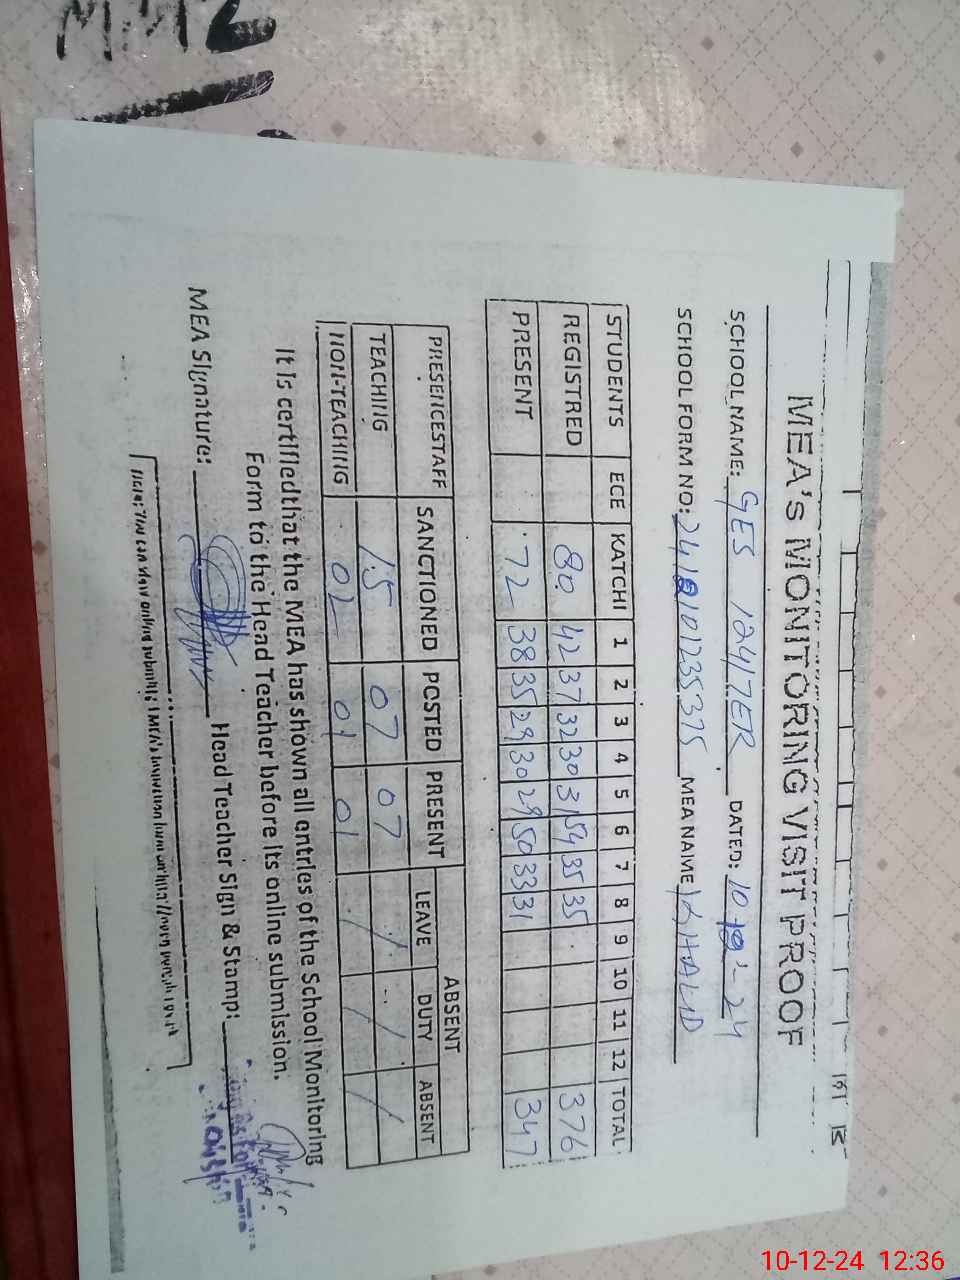 MEA's MONITORING VISIT PROOF
SCHOOL NAME: GES 124/7ER DATED: 10-12-24
SCHOOL FORM NO: MEA NAME KHALID
STUDENTS ECE KATCHI 1 2 3 4 5 6 7 8 9 10 11 12 TOTAL
REGISTRED 80 42 37 32 30 31 54 35 35 376
PRESENT 72 38 35 29 30 29 50 33 31 347
PRESENCESTAFF SANCTIONED POSTED PRESENT ABSENT
LEAVE DUTY ABSENT
TEACHING 15 07 07
NON-TEACHING 02 01 01
It is certifiedthat the MEA has shown all entries of the School Monitoring
Form to the Head Teacher before its online submission.
MEA Signature: Head Teacher Sign & Stamp:
10-12-24 12:36